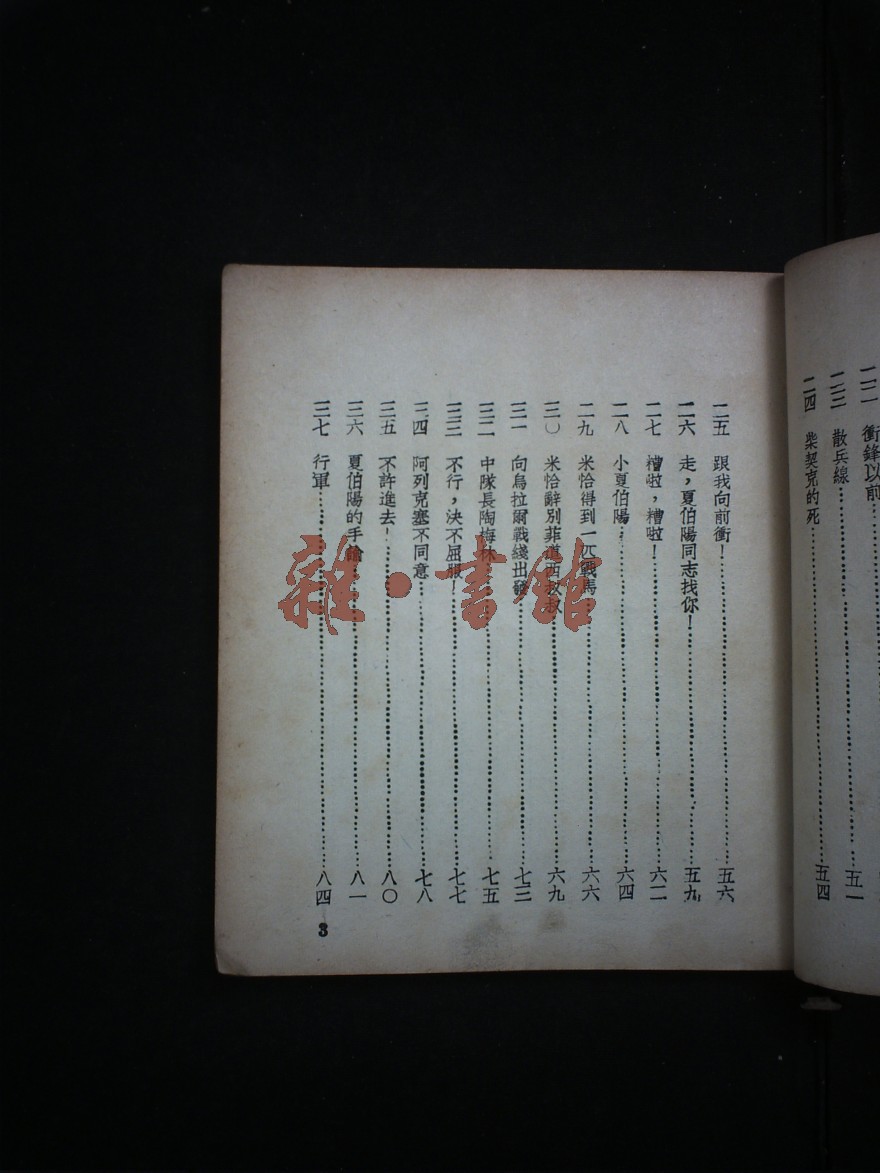 二二 衝鋒以前
二三 散兵線……五一
二四 柴契克的死……五四
二五 跟我向前衝！……五六
二六 走，夏伯陽同志找你！……五九
二七 糟啦，糟啦！……六二
二八 小夏伯陽……六四
二九 米恰得到一匹戰馬……六六
三〇 米恰辭別菲道西叔叔……六九
三一 向烏拉爾戰綫出發……七三
三二 中隊長陶梅林……七五
三三 不行，決不屈服！……七七
三四 阿列克塞不同意……七八
三五 不許進去！……八〇
三六 夏伯陽的手諭……八一
三七 行軍……八四
3
雜·書館